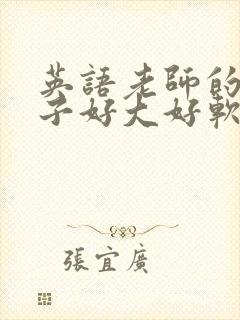 英語老師的
子好大好軟
張宜廣